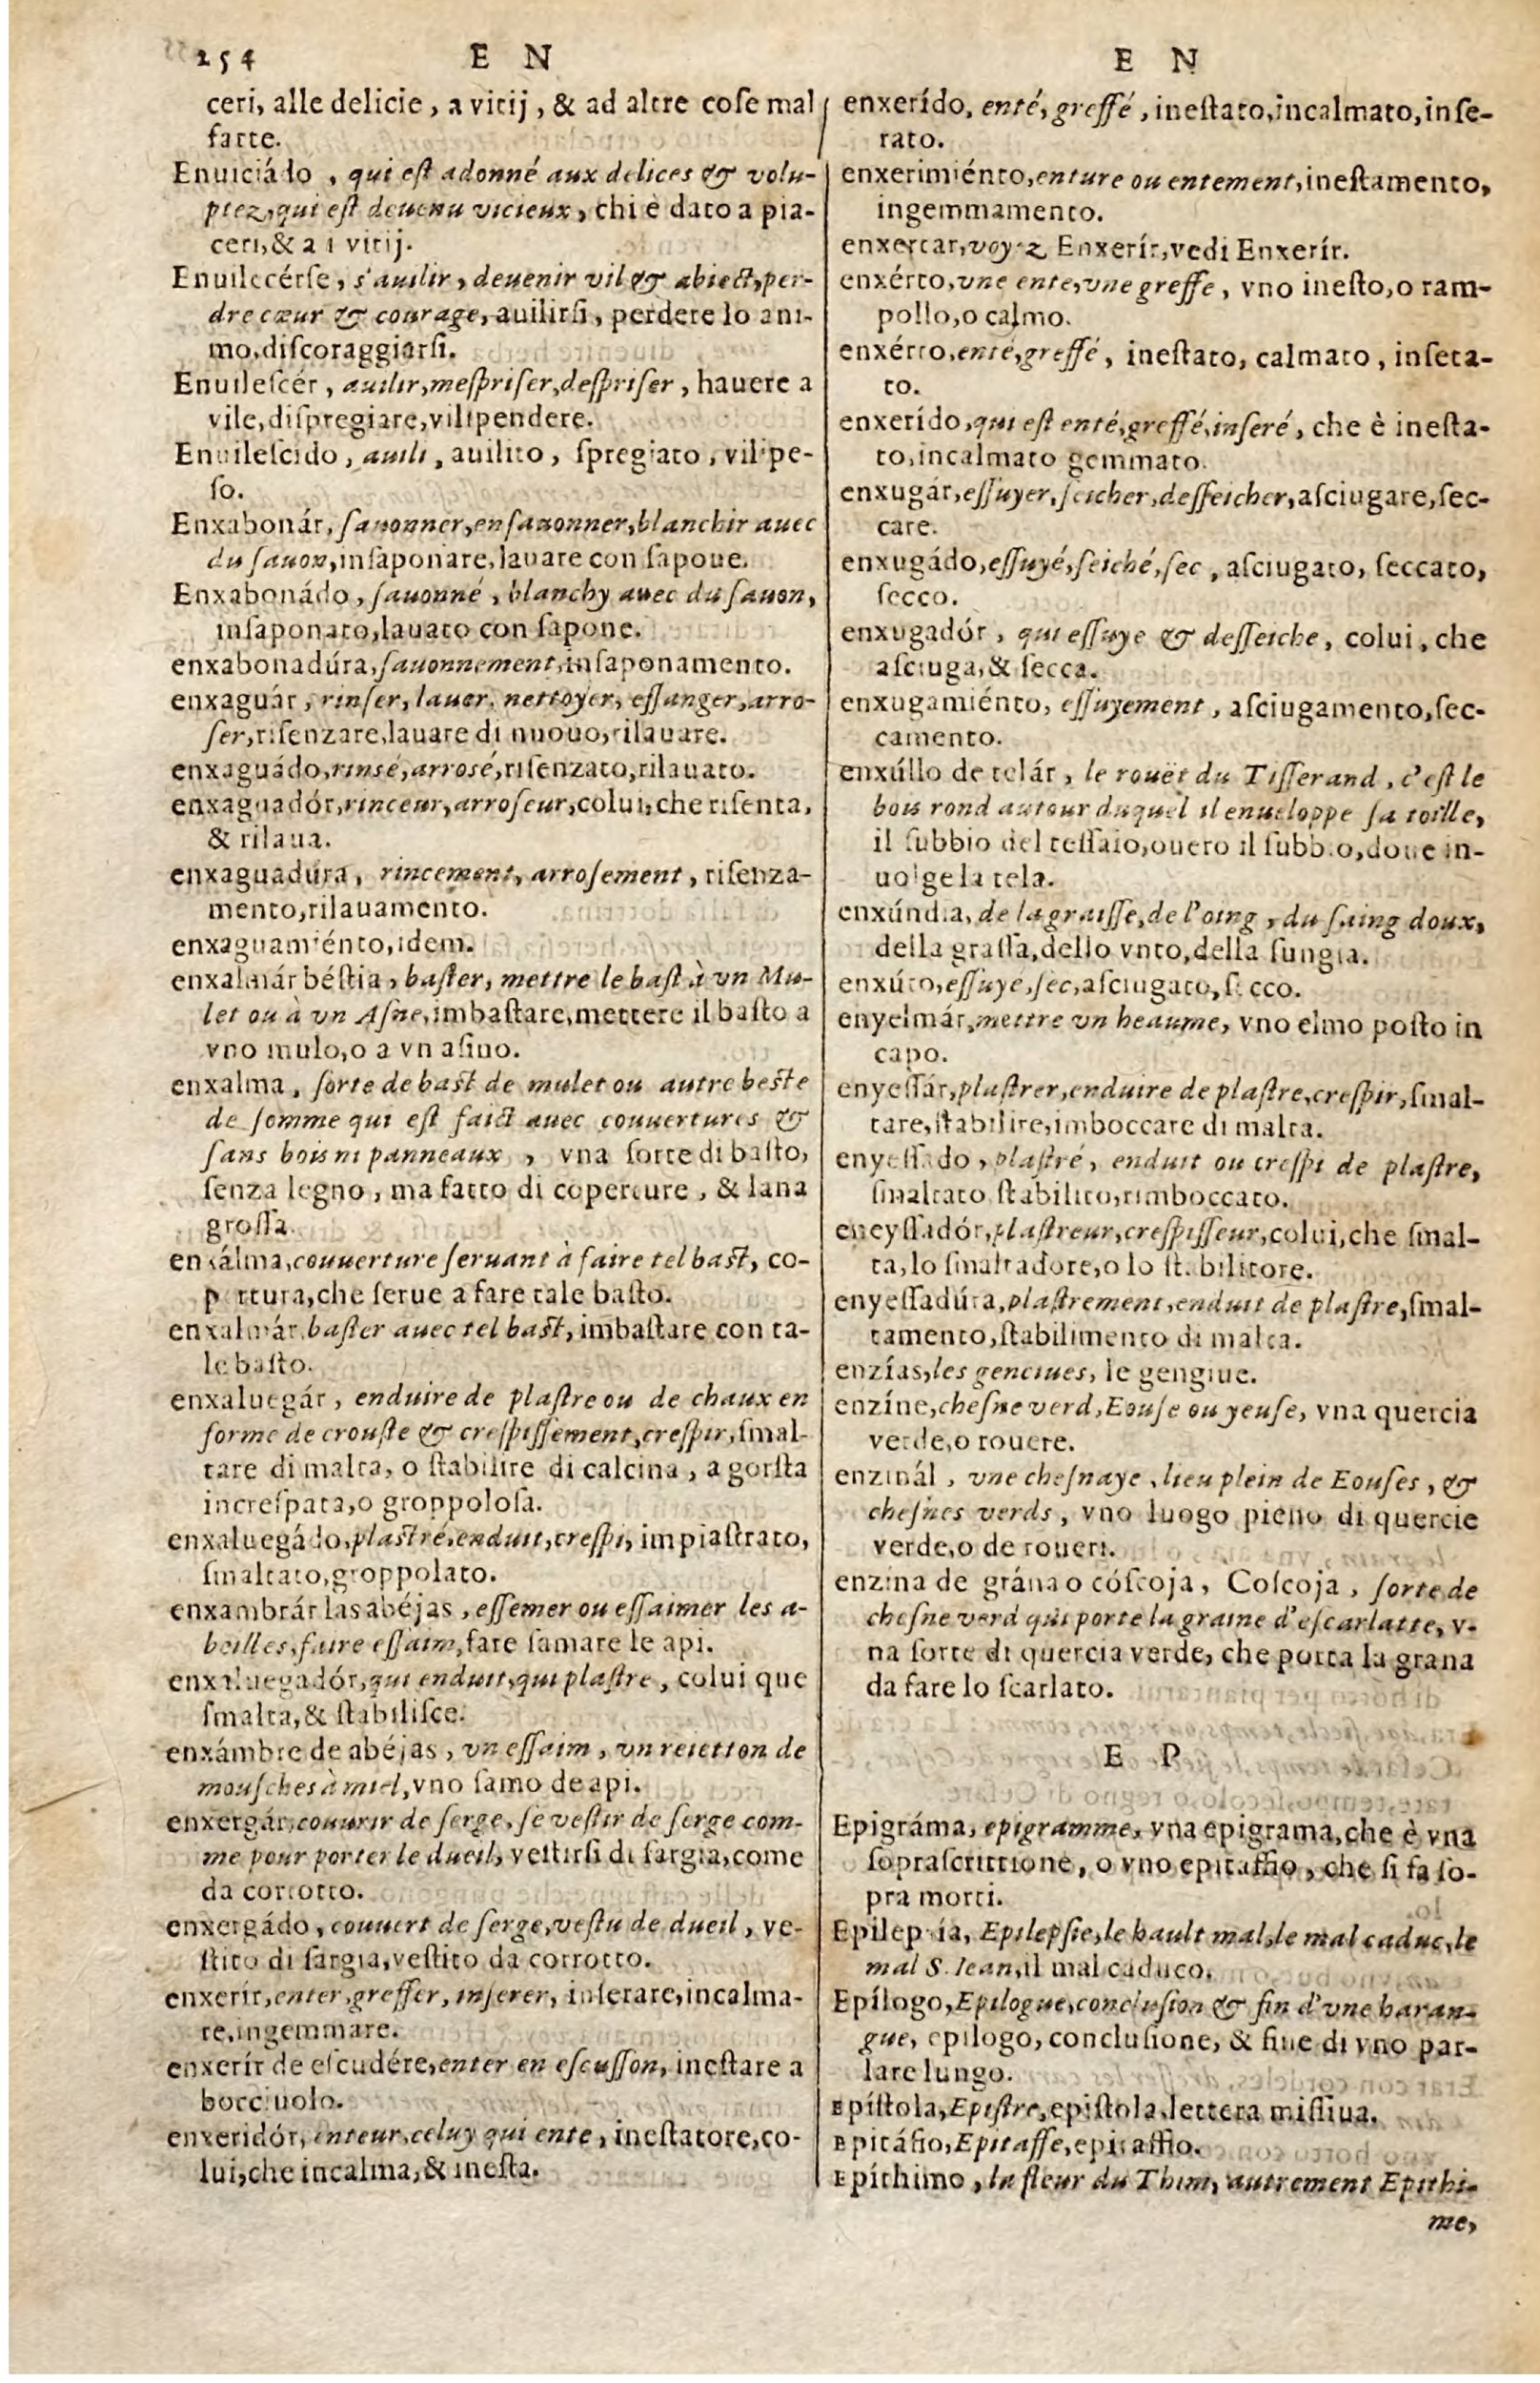 254 E N
ceri, alle delicie, a vitij, & ad altre coſe mal
fatte.
Enuiciádo, qui eſt adonné aux delices & volu-
ptez, qui eſt deuenu vicieux, chi è dato a pia-
ceri, & a i vitij.
Enuilecérſe, s'auilir, deuenir vil & abiect, per-
dre cœur & courage, auilirſi, perdere lo ani-
mo, diſcoraggiarſi.
Enuileſcér, auilir, meſpriſer, deſpriſer, hauere a
vile, diſpregiare, vilipendere.
Enuileſcido, auili, auilito, ſpregiato, vilipe-
ſo.
Enxabonár, ſauonner, enſauonner, blanchir auec
du ſauon, inſaponare, lauare con ſapone.
Enxabonádo, ſauonné, blanchy auec du ſauon,
inſaponato, lauato con ſapone.
enxabonadúra, ſauonnement, inſaponamento.
enxaguár, rinſer, lauer, nettoyer, eſſanger, arro-
ſer, riſenzare, lauare di nuouo, rilauare.
enxaguádo, rinsé, arrosé, riſenzato, rilauato.
enxaguadór, rinceur, arroſeur, colui, che riſenta,
& rilaua.
enxaguadúra, rincement, arroſement, riſenza-
mento, rilauamento.
enxaguamiénto, idem.
enxalmár béſtia, baſter, mettre le baſt à vn Mu-
let ou à vn Aſne, imbaſtare, mettere il baſto a
vno mulo, o a vn aſino.
enxalma, ſorte de baſt de mulet ou autre beſte
de ſomme qui eſt faict auec couuertures &
ſans bois ni panneaux, vna ſorte di baſto,
ſenza legno, ma fatto di coperture, & lana
groſſa.
enxálma, couuerture ſeruant à faire tel baſt, co-
pertura, che ſerue a fare tale baſto.
enxalmár, baſter auec tel baſt, imbaſtare con ta-
le baſto.
enxaluegár, enduire de plaſtre ou de chaux en
forme de crouſte & creſpiſſement, creſpir, ſmal-
tare di malta, o ſtabilire di calcina, a gorſta
increſpata, o groppoloſa.
enxaluegádo, plaſtré, enduit, creſpi, impiaſtrato,
ſmaltato, groppolato.
enxambrár las abéjas, eſſemer ou eſſaimer les a-
beilles, faire eſſaim, fare ſamare le api.
enxaluegadór, qui enduit, qui plaſtre, colui que
ſmalta, & ſtabiliſce.
enxámbre de abéjas, vn eſſaim, vn reietton de
mouſches à miel, vno ſamo de api.
enxergár, couurir de ſerge, ſe veſtir de ſerge com-
me pour porter le dueil, veſtirſi di ſargia, come
da corrotto.
enxergádo, couuert de ſerge, veſtu de dueil, ve-
ſtito di ſargia, veſtito da corrotto.
enxerír, enter, greffer, inſerer, inſerare, incalma-
re, ingemmare.
enxerír de eſcudére, enter en eſcuſſon, ineſtare a
bocciuolo.
enxeridór, enteur, celuy qui ente, ineſtatore, co-
lui, che incalma, & ineſta.
E N
enxerído, enté, greffé, ineſtato, incalmato, inſe-
rato.
enxerimiénto, enture ou entement, ineſtamento,
ingemmamento.
enxertar, voyez Enxerír, vedi Enxerír.
enxérto, vne ente, vne greffe, vno ineſto, o ram-
pollo, o calmo.
enxérto, enté, greffé, ineſtato, calmato, inſeta-
to.
enxerído, qui eſt enté, greffé, inſeré, che è ineſta-
to, incalmato gemmato.
enxugár, eſſuyer, ſeicher, deſſeicher, aſciugare, ſec-
care.
enxugádo, eſſuyé, ſeiché, ſec, aſciugato, ſeccato,
ſecco.
enxugadór, qui eſſuye & deſſeiche, colui, che
aſciuga, & ſecca.
enxugamiénto, eſſuyement, aſciugamento, ſec-
camento.
enxúllo de telár, le rouët du Tiſſerand, c'eſt le
bois rond autour duquel il enueloppe ſa toille,
il ſubbio del teſſaio, ouero il ſubbio, doue in-
uolge la tela.
enxúndia, de la graiſſe, de l'oing, du ſaing doux,
della graſſa, dello vnto, della ſungia.
enxúto, eſſuye, ſec, aſciugato, ſecco.
enyelmár, mettre vn heaume, vno elmo poſto in
capo.
enyeſſár, plaſtrer, enduire de plaſtre, creſpir, ſmal-
tare, ſtabilire, imboccare di malta.
enyeſſado, plaſtré, enduit ou creſpi de plaſtre,
ſmaltato ſtabilito, rimboccato.
eneyſſadór, plaſtreur, creſpiſſeur, colui, che ſmal-
ta, lo ſmaltadore, o lo ſtabilitore.
enyeſſadúra, plaſtrement, enduit de plaſtre, ſmal-
tamento, ſtabilimento di malta.
enzías, les genciues, le gengiue.
enzíne, cheſne verd, Eouſe ou yeuſe, vna quercia
verde, o rouere.
enzinál, vne cheſnaye, lieu plein de Eouſes, &
cheſnes verds, vno luogo pieno di quercie
verde, o de roueri.
enzina de grána o cóſcoja, Coſcoja, ſorte de
cheſne verd qui porte la graine d'eſcarlatte, v-
na ſorte di quercia verde, che porta la grana
da fare lo ſcarlato.
E P
Epigráma, epigramme, vna epigrama, che è vna
ſopraſcrittione, o vno epitaffio, che ſi fa ſo-
pra morti.
Epilepsia, Epilepſie, le hault mal, le mal caduc, le
mal S. Iean, il mal caduco.
Epílogo, Epilogue, concluſion & fin d'vne haran-
gue, epilogo, concluſione, & fine di vno par-
lare lungo.
Epíſtola, Epiſtre, epiſtola, lettera miſſiua.
Epitáfio, Epitaffe, epitaffio.
Epíthimo, la fleur du Thim, autrement Epithi-
me,